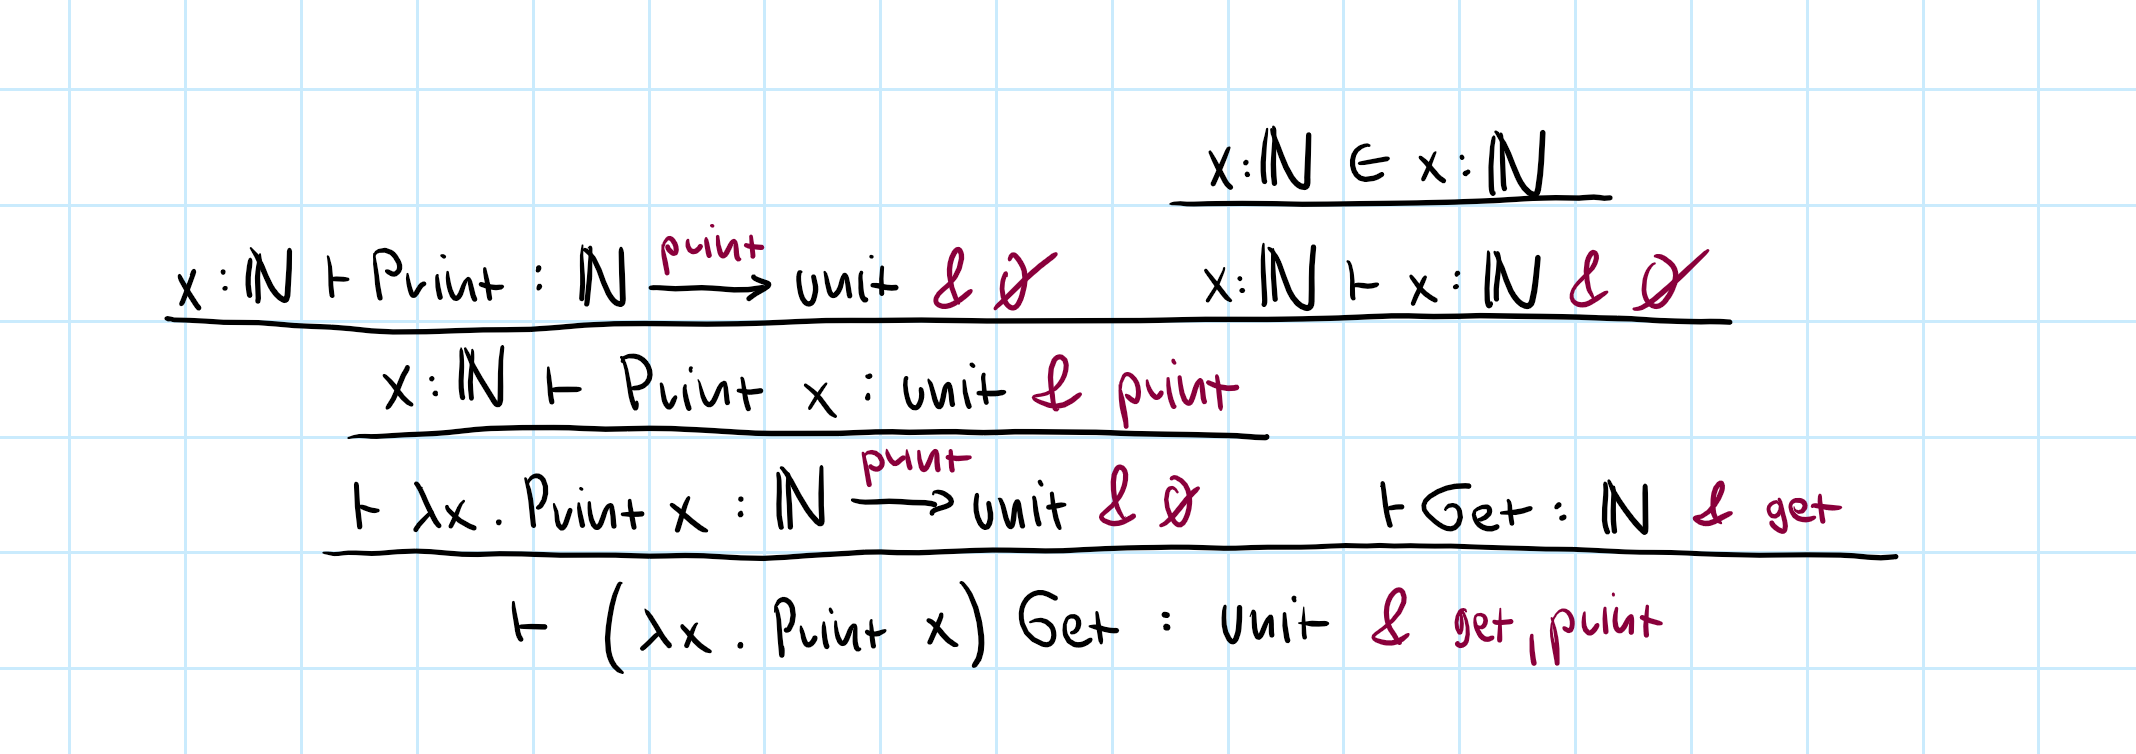 x:ℕ ∈ x:ℕ
x:ℕ ⊢ Print : ℕ —print→ unit & ∅    x:ℕ ⊢ x:ℕ & ∅
x:ℕ ⊢ Print x : unit & print
⊢ λx. Print x : ℕ —print→ unit & ∅    ⊢ Get : ℕ & get
⊢ (λx. Print x) Get : unit & get, print